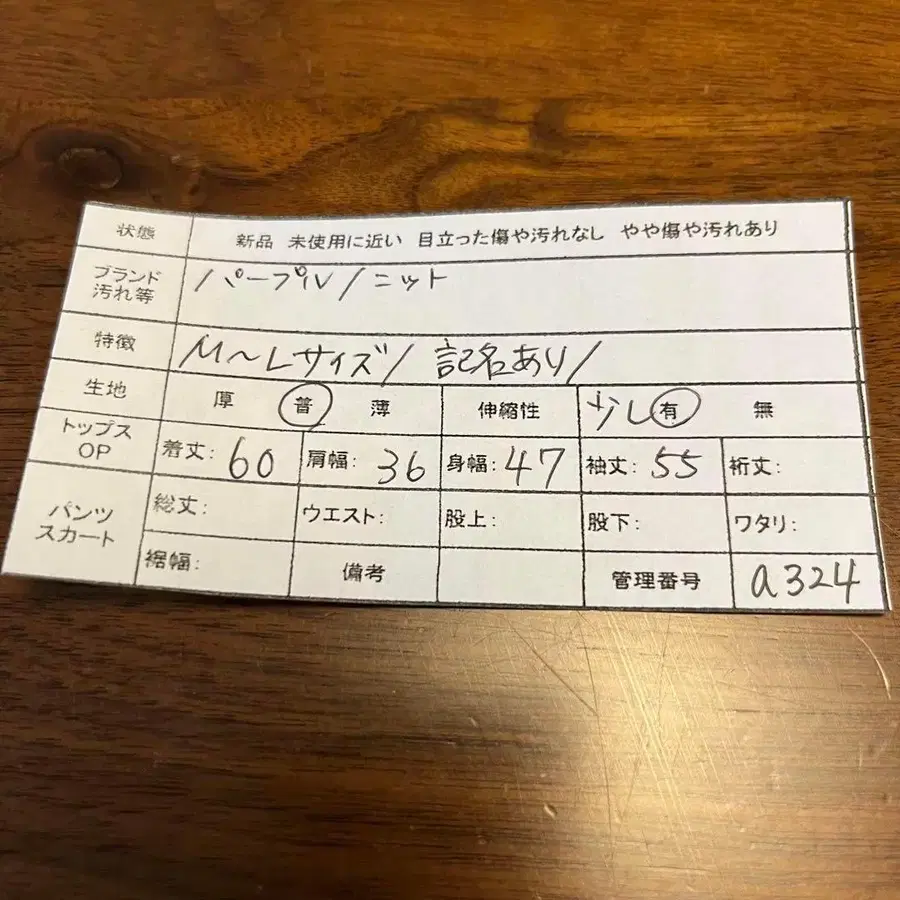 状態 新品 未使用に近い 目立った傷や汚れなし やや傷や汚れあり
ブランド 汚れ等 /パープル/ニット
特徴 M〜Lサイズ/ 記名あり/
生地 厚 普 薄 伸縮性 少し有 無
トップス OP 着丈: 60 肩幅: 36 身幅: 47 袖丈: 55 裄丈:
パンツ スカート 総丈: ウエスト: 股上: 股下: ワタリ:
裾幅: 備考 管理番号 a324